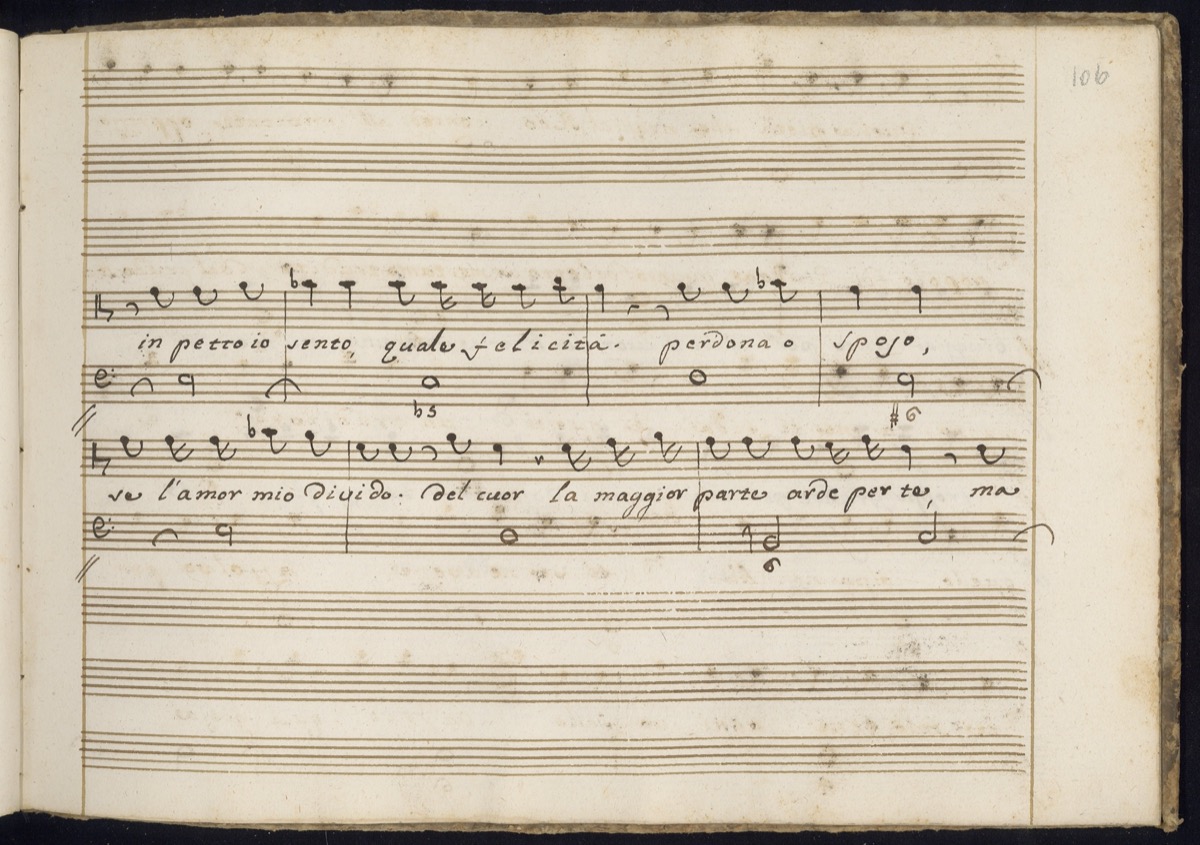 106
in petto io sento, quale felicità. perdona o sposo,
b5
#6
se l'amor mio divido. del cuor la maggior parte arde per te, ma
6